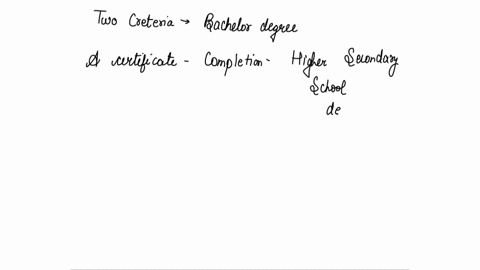 Two Creteria → Bachelor degree
A certificate - Completion - Higher Secondary
School
de